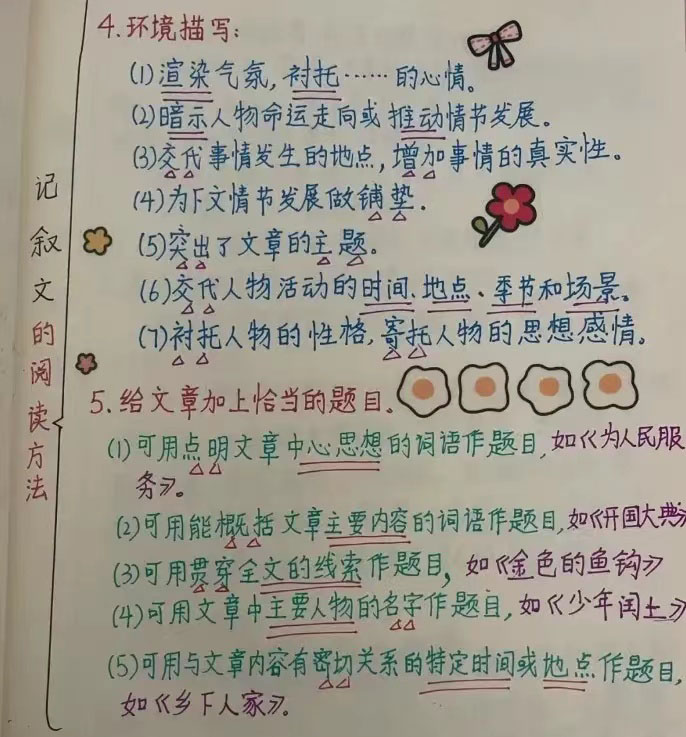 4.环境描写:
(1)渲染气氛,衬托……的心情。
(2)暗示人物命运走向或推动情节发展。
(3)交代事情发生的地点,增加事情的真实性。
(4)为下文情节发展做铺垫.
(5)突出了文章的主题。
(6)交代人物活动的时间、地点、季节和场景。
(7)衬托人物的性格,寄托人物的思想感情。
记叙文的阅读方法
5.给文章加上恰当的题目。
(1)可用点明文章中心思想的词语作题目,如《为人民服
务》。
(2)可用能概括文章主要内容的词语作题目,如《开国大典》
(3)可用贯穿全文的线索作题目,如《金色的鱼钩》
(4)可用文章中主要人物的名字作题目,如《少年闰土》
(5)可用与文章内容有密切关系的特定时间或地点作题目,
如《乡下人家》。